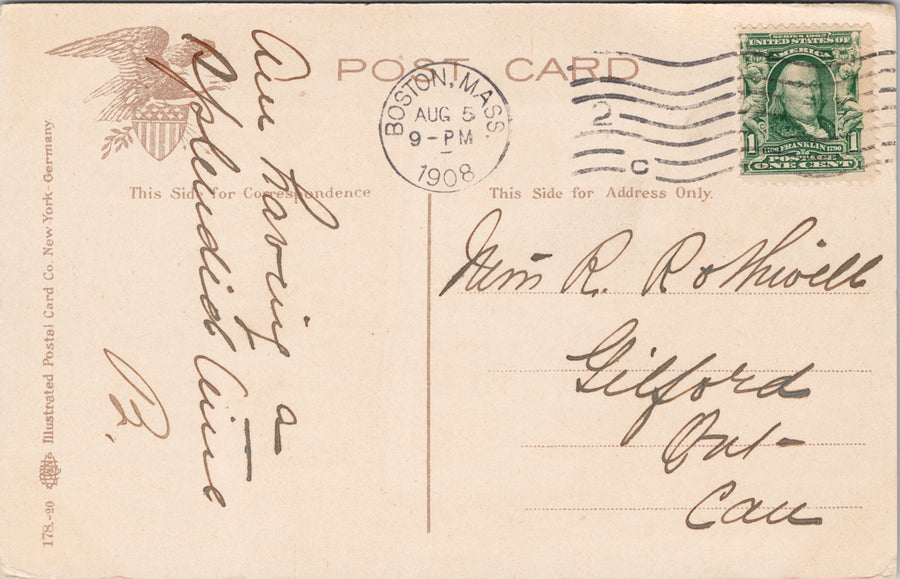 POST CARD
BOSTON, MASS.
AUG 5
9-PM
1908
2
C
SERIES 1902
UNITED STATES OF
AMERICA
1 FRANKLIN 1
POSTAGE
ONE CENT
This Side for Correspondence
This Side for Address Only.
Am having a
splendid time
B.
Miss R. Rothwell
Gilford
Ont-
Can
178.-20 Illustrated Postal Card Co. New York-Germany